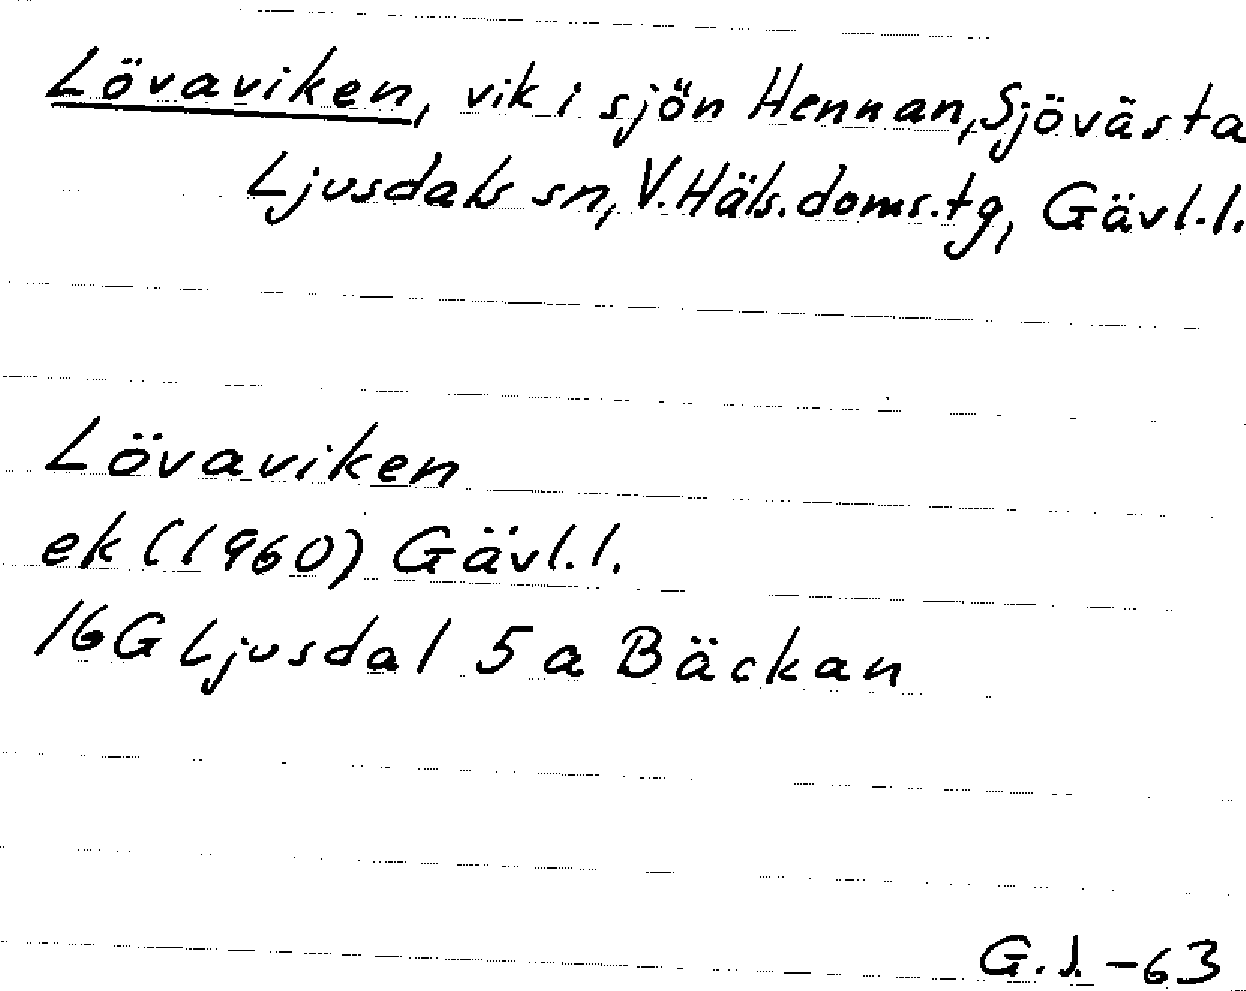 Lövaviken, vik i sjön Hennan, Sjövästa
Ljusdals sn, V. Häls. doms. tg, Gävl. l.
Lövaviken
ek (1960) Gävl. l.
16G Ljusdal 5 a Bäckan
G. J. -63